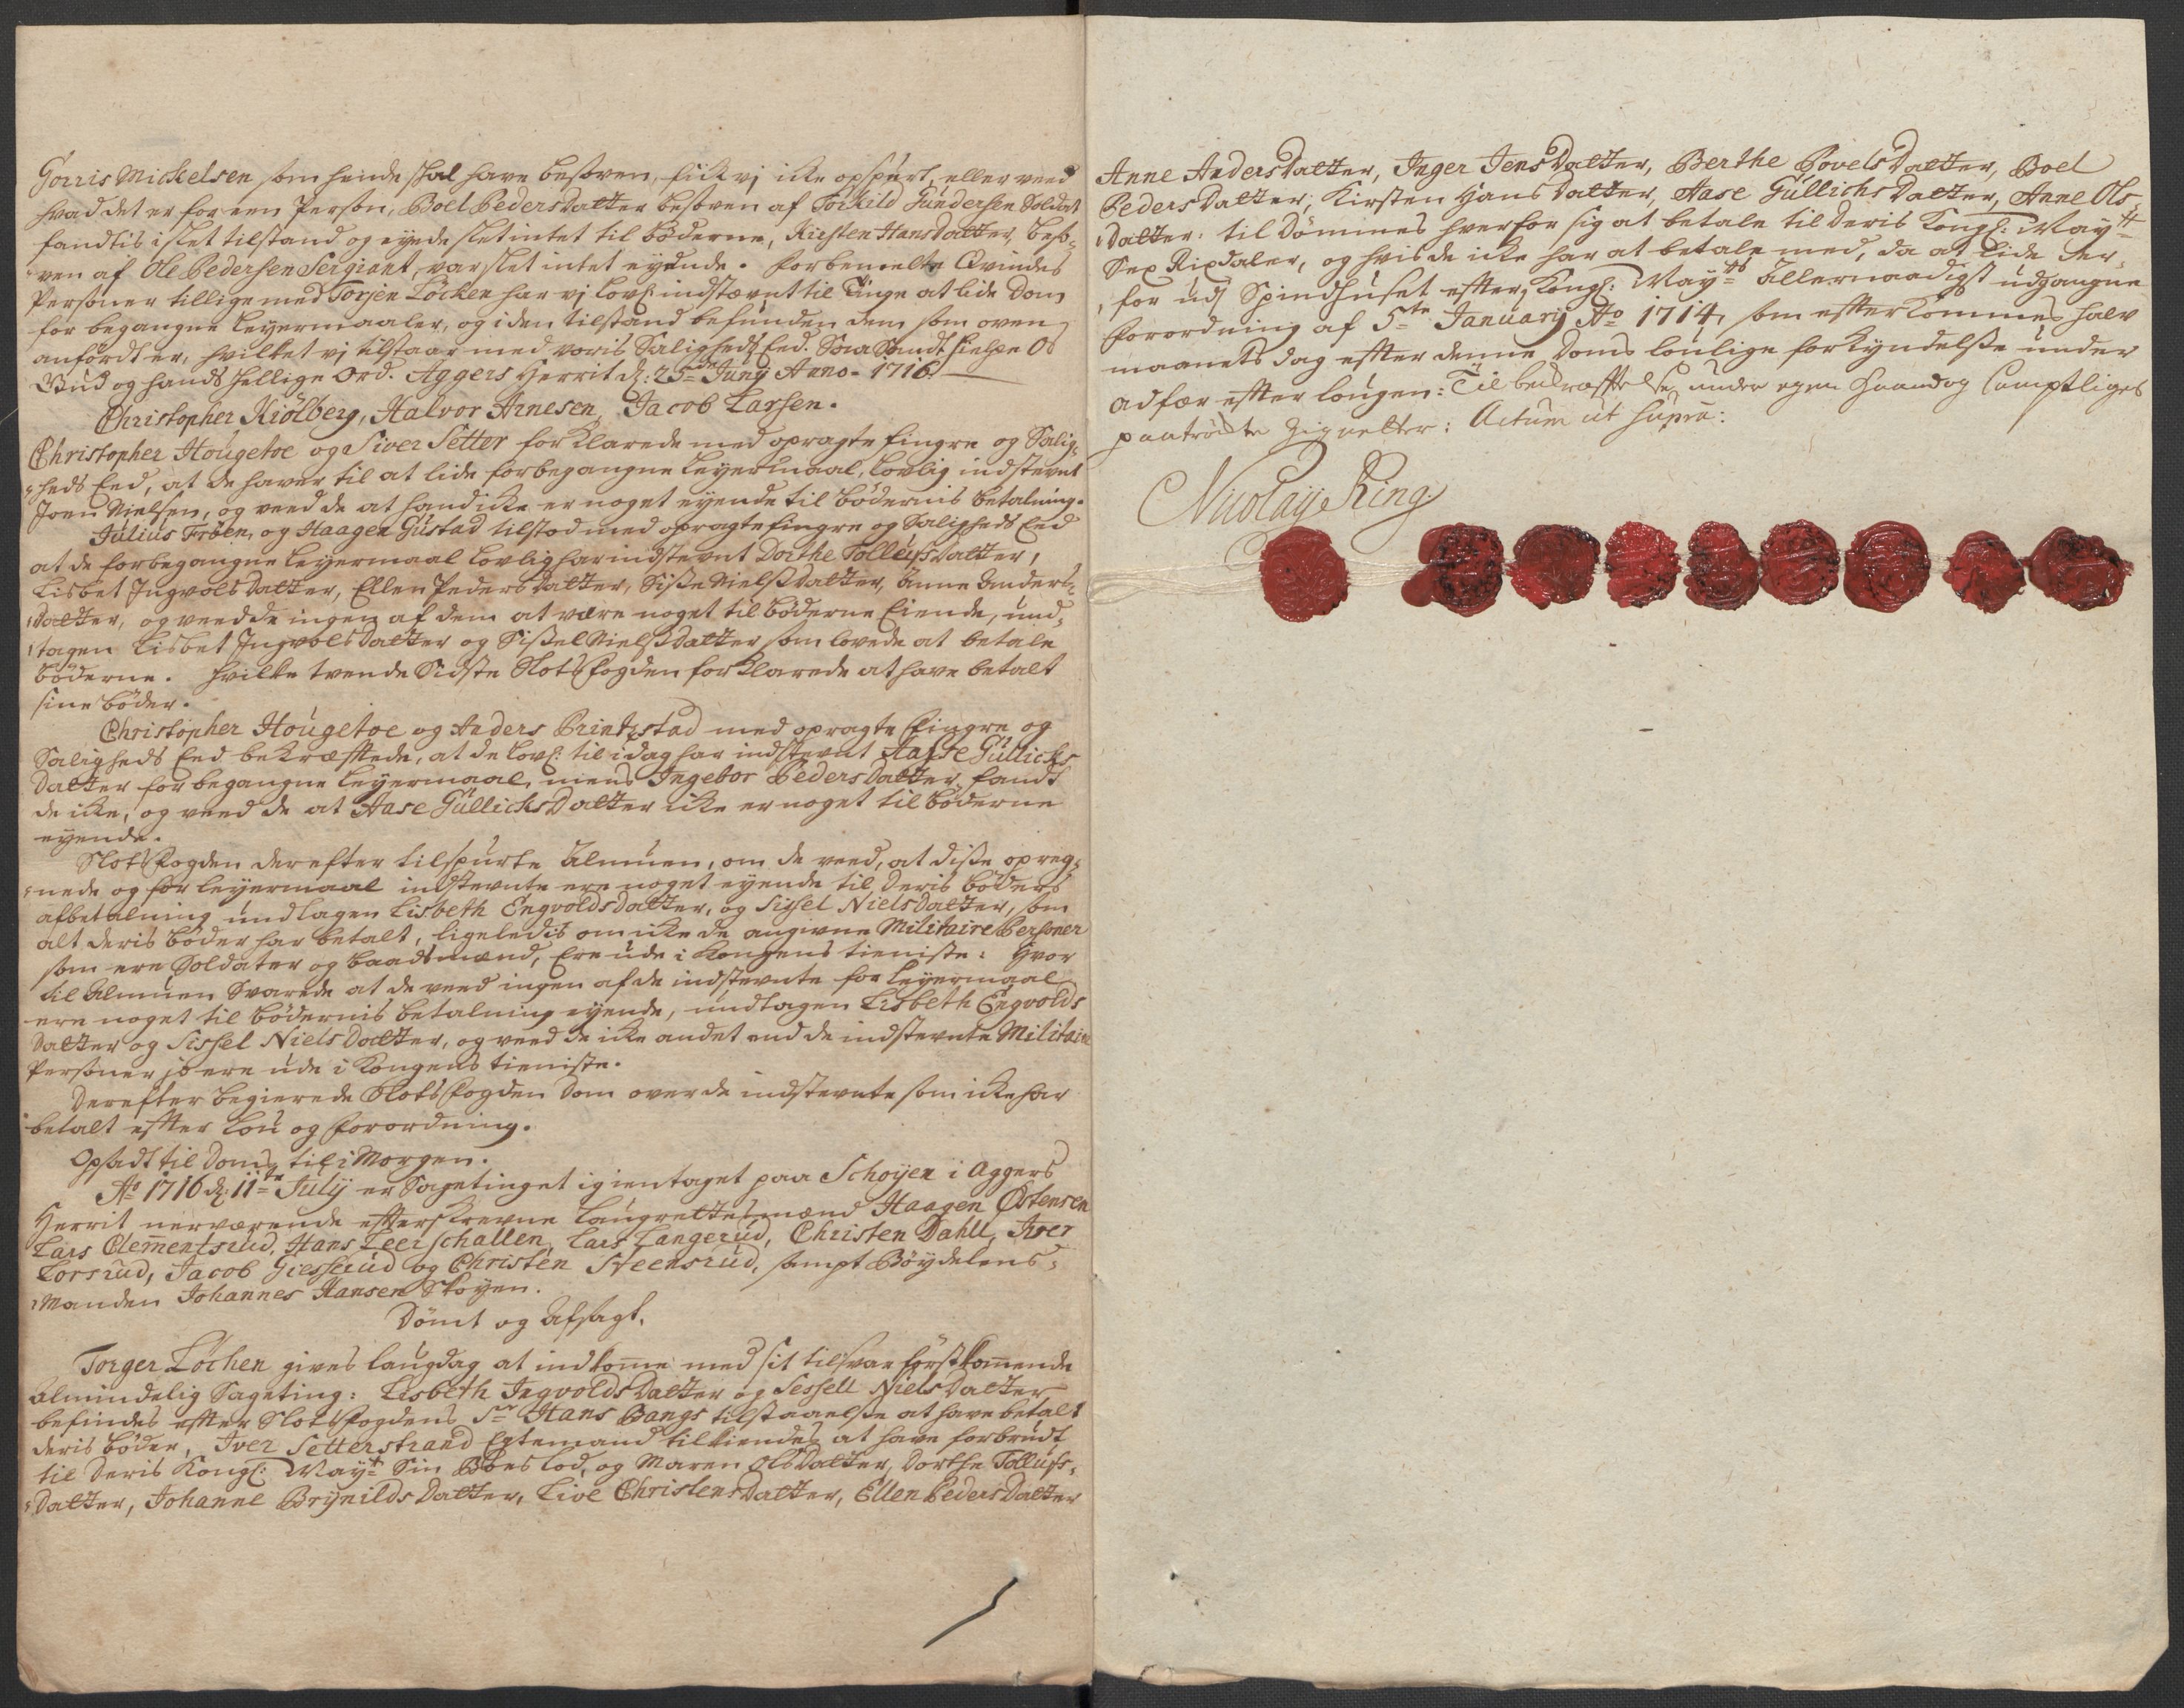 Gorris Mickelsen som hende skal have besoven, fick vj icke opspurt, eller veed
hvad det er for een Person, Boel Peders Datter besoven af Torkild Gundersen Soldat
fandtis i slet tilstand og eyede slet intet til bøderne, Kirsten Hans datter, beso-
ven af Ole Pedersen Sergiant, var slet intet eyende. forbemelte Qvindes
Personer tillige med Torjen Löcken har vj lovl: indstævnt til Tinge at lide dom
for begangne leyermaaler, og i den tilstand befunden dem som oven
anfördt er, hvilket vj tilstaar med voris Saligheds Eed. Saa Sandt hielpe Os
Gud og hands hellige Ord. Aggers Herrit d: 25de Junij Anno 1716.
Christopher Kiölberg, Halvor Arnesen, Jacob Larsen.
Christopher Hougetoe og Siver Setter forklarede med opragte fingre og Salig-
heds Eed, at de haver til at lide for begangne leyermaal, lovlig indstevnt
Joen Nielsen, og veed de at hand icke er noget eyende til bødernis betalning.
Julius Fröen, og Haagen Gustad tilstod med opragte fingre og Saligheds Eed
at de for begangne leyermaal lovlig har indstevnt Dorthe Tollefsdatter,
Lisbet Ingvolds datter, Ellen Peders datter, Sisse Niels datter, Anne Anders
datter, og veed de ingen af dem at være noget til bøderne Eiende, und-
tagen Lisbet Ingvolds datter og Sissel Niels datter som lovede at betale
bøderne. Hvilke tvende Sidste Slotsfogden forklarede at have betalt
sine bøder.
Christopher Hougetoe og Anders Printzstad med opragte fingre og
Saligheds Eed bekræftede, at de lovl: til i dag har indstevnt Aasse Gullichs
Datter for begangne leyermaal, mens Ingebor Peders Datter fandt
de icke, og veed de at Aase Gullichs Datter icke er noget til bøderne
eyende.
Slotsfogden derefter tilspurte Almuen, om de veed, at disse opreg-
nede og for leyermaal indstevnte ere noget eyende til deris bøders
afbetalning undtagen Lisbeth Engvoldsdatter, og Sissel Nielsdatter, som
alt deris bøder har betalt, ligeledis om icke de angivne Militaire Personer
som ere Soldater og baadsmænd, Ere ude i Kongens tieniste: Hvor
til Almuen Svarede at de veed ingen af de indstevnte for leyermaal
ere noget til bødernis betalning eyende, undtagen Lisbeth Engvolds
datter og Sissel Niels Datter, og veed de icke andet end de indstevnte Militaire
Personer jo ere ude i Kongens tieniste.
Derefter begierede Slotsfogden Dom over de indstevnte som icke har
betalt efter Lou og forordning.
Opsadt til Doms til i Morgen.
Ao 1716 d: 11te July er Sagetinget igientaget paa Schoyen i Aggers
Herrit nerværende efterskrevne Laugrettesmænd Haagen Östensen
Lars Clemmentsrud, Hans Leerschallen, Lars Langerud, Christen Dahll, Iver
Lorsrud, Jacob Giesserud og Christen Steensrud, sampt Bøydelens-
Manden Johannes Hansen Skoyen.
Dömt og Afsagt.
Torger Löchen gives laugdag at indkomme med sit tilsvar förstkommende
almindelig Sageting: Lisbeth Ingvolds Datter og Sessell Niels Datter
befindes efter Slotsfogdens Sr Hans Bangs tilstaaelse at have betalt
deris bøder, Iver Setterstrand Egtemand tilkiendes at have forbrudt
til deris Kongl: Mayt: Sin Boeslod, og Maren Olsdatter, Dorthe Tollufs-
Datter, Johanne Brynilds Datter, Live Christens Datter, Ellen Peders Datter
Anne Anders datter, Inger Jens Datter, Berthe Povels Datter, Boel
Peders Datter, Kirsten Hans Datter, Aase Gullichs Datter, Anne Ols-
datter: til Dömmes hver for sig at betale til deris Kongl: Maytt
Sex Rixdaler, og hvis de icke har at betale med, da at lide der-
for udj Spindhuset efter Kongl: Mayts: allernaadigst udgangne
forordning af 5te January Ao 1714, som efterkommes halv
maanets dag efter denne Doms loulige forkyndelse under
adfær efter lougen: Til bekræftelse under egen Haand og samptliges
paatröckte Zignetter: Actum ut Supra:
Nicolaij Ring